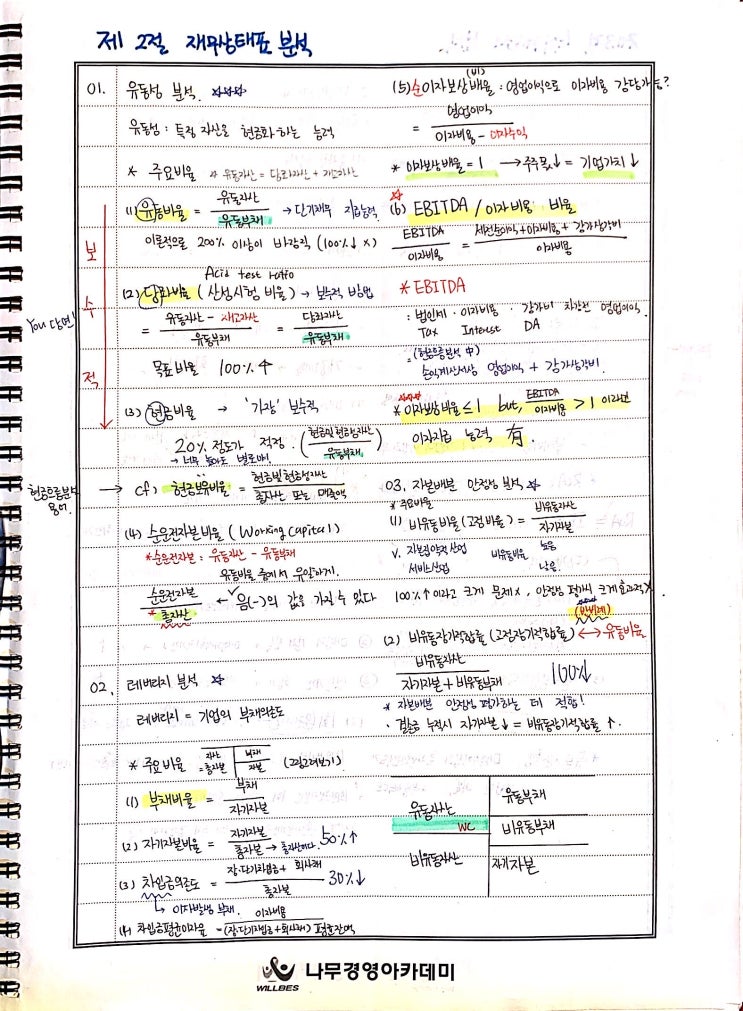 제 2절 재무상태표 분석
01. 유동성 분석. ☆☆☆
유동성 : 특정 자산을 현금화 하는 능력
* 주요비율 * 유동자산 = 당좌자산 + 재고자산
(1) 유동비율 = 유동자산 / 유동부채 → 단기채무 지급능력
이론적으로 200% 이상이 바람직 (100%↓ X)
보수적
You 당현!
Acid test ratio
(2) 당좌비율 (산성시험 비율) → 보수적 방법
= 유동자산 - 재고자산 / 유동부채 = 당좌자산 / 유동부채
목표비율 100%↑
(3) 현금비율 → '가장' 보수적
20% 정도가 적정. (현금및현금성자산 / 유동부채)
→ 너무 높아도 별로야!
현금흐름분석 용어.
→ cf) 현금보유비율 = 현금및현금성자산 / 총자산 또는 매출액
(4) 순운전자본비율 (Working Capital)
* 순운전자본 : 유동자산 - 유동부채
유동비율 중에서 유일하게.
순운전자본 / * 총자산 ← 음(-)의 값을 가질 수 있다
02. 레버리지 분석 ☆
레버리지 = 기업의 부채의존도
* 주요비율 자산 =총자본 | 부채 자본 (그림그려보기)
(1) 부채비율 = 부채 / 자기자본
(2) 자기자본비율 = 자기자본 / 총자본 → 총자산이다. 50%↑
(3) 차입금의존도 = 장·단기차입금 + 회사채 / 총자본 30%↓
↳ 이자발생 부채.
(4) 차입금평균이자율 = 이자비용 / (장·단기차입금+회사채) 평균잔액
(5) 순이자보상배율(비) : 영업이익으로 이자비용 감당가능?
= 영업이익 / 이자비용 - 이자수익
* 이자보상배율 = 1 → 주주몫↓ = 기업가치↓
☆
(6) EBITDA / 이자비용 비율
EBITDA / 이자비용 = 세전순이익 + 이자비용 + 감가상각비 / 이자비용
* EBITDA
: 법인세 · 이자비용 · 감가비 차감전 영업이익.
Tax Interest DA
= (현금흐름분석 中)
손익계산서상 영업이익 + 감가상각비.
☆☆☆
* 이자보상비율 ≤ 1 but, EBITDA / 이자비용 > 1 이라면
이자지급 능력 有.
03. 자본배분 안정성 분석 ☆
* 주요비율
(1) 비유동비율 (고정비율) = 비유동자산 / 자기자본
v. 자본집약적산업 비유동비율 높음
서비스산업 낮음.
100%↑이라고 크게 문제X, 안정성 평가시 크게 효과적X
(반비례)
(2) 비유동장기적합률 (고정장기적합률) ↔ 유동비율
비유동자산 / 자기자본 + 비유동부채 100%↓
* 자본배분 안정성 평가하는 데 적합!
· 결손금 누적시 자기자본↓ = 비유동장기적합률 ↑.
유동자산 유동부채
WC 비유동부채
비유동자산 자기자본
WILLBES 나무경영아카데미